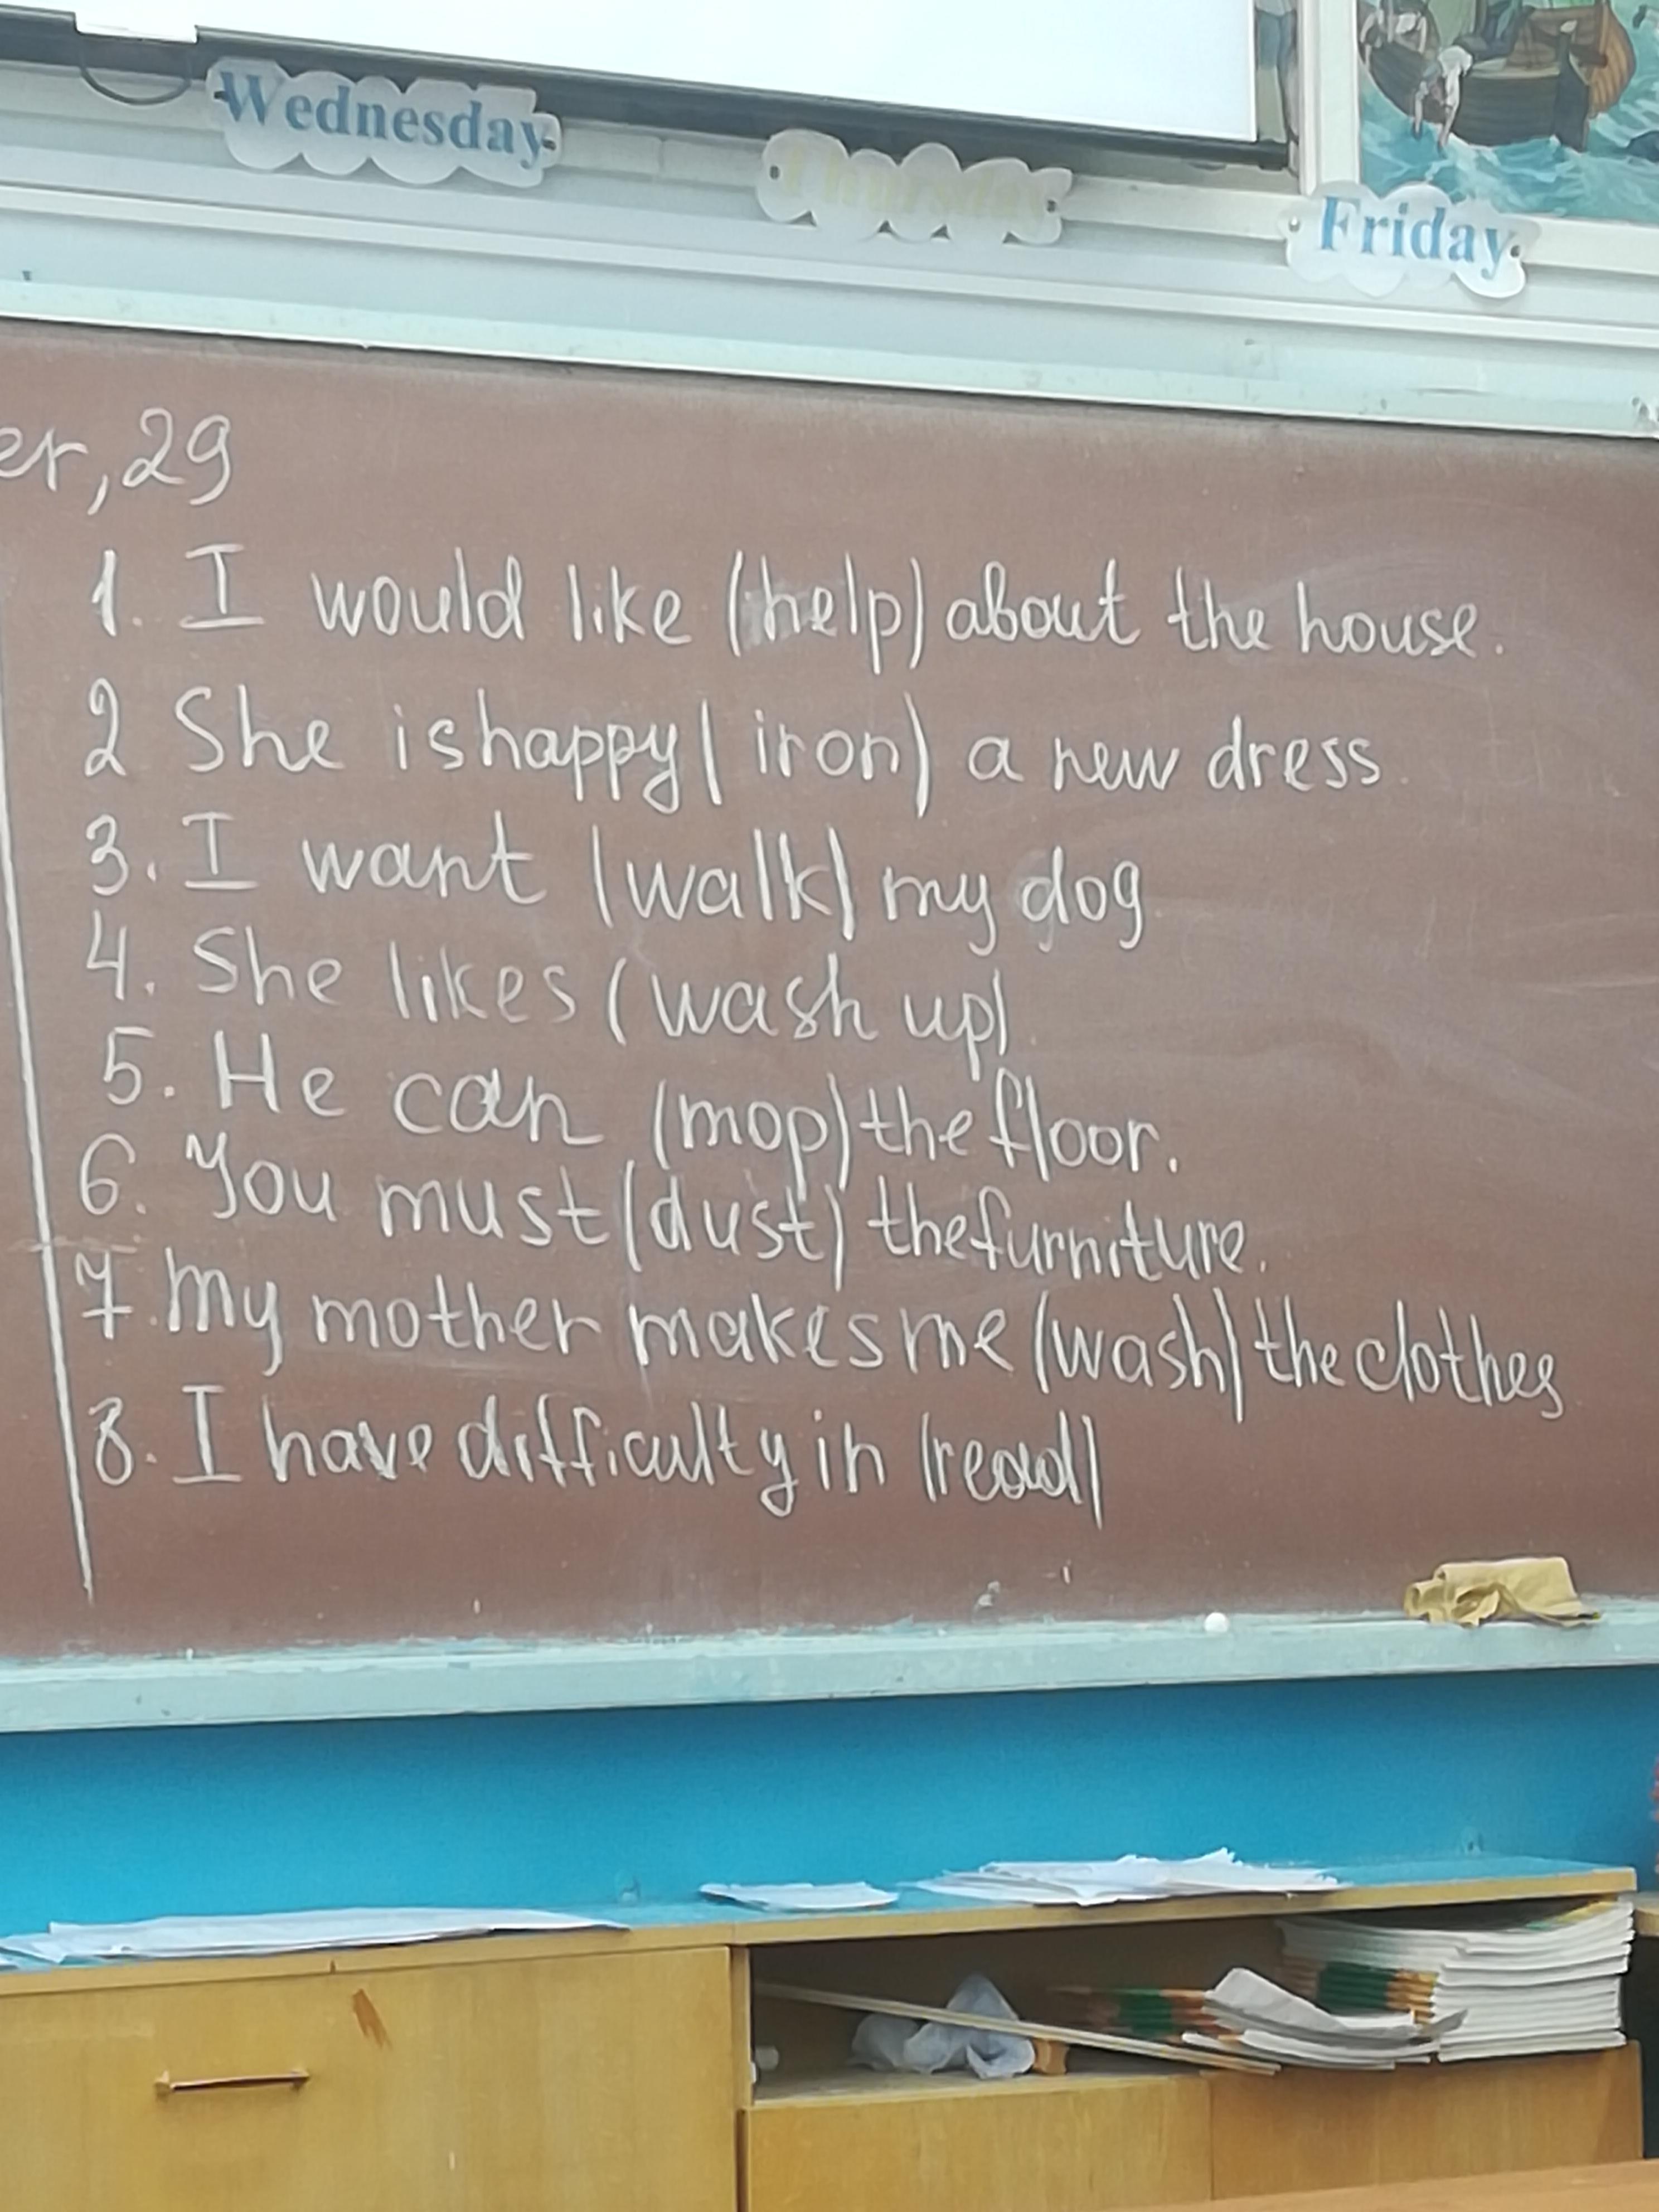 Wednesday
Thursday
Friday
er, 29
1. I would like (help) about the house.
2 She is happy (iron) a new dress
3. I want (walk) my dog
4. She likes (wash up)
5. He can (mop) the floor.
6. You must (dust) the furniture.
7. My mother makes me (wash) the clothes
8. I have difficulty in (read)